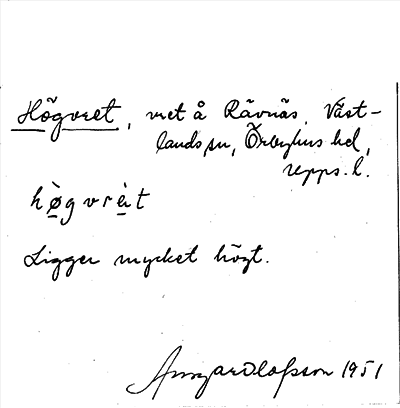 Högvret, vret å Rävnäs, Väst-
lands sn, Örbyhus hd,
Upps. l.
hø̀gvrèt
Ligger mycket högt.
Olofsson 1951